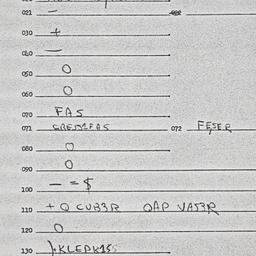 021 —
030 +
040 —
050 O
060 O
070 FAS
071 072 FESER
080 O
090 O
100 — = $
110 + O CUB3R OAP VA53R
120 O
130